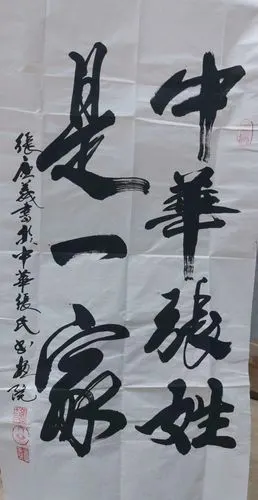 中華張姓
是一家
張慶義書於中華張氏書畫院